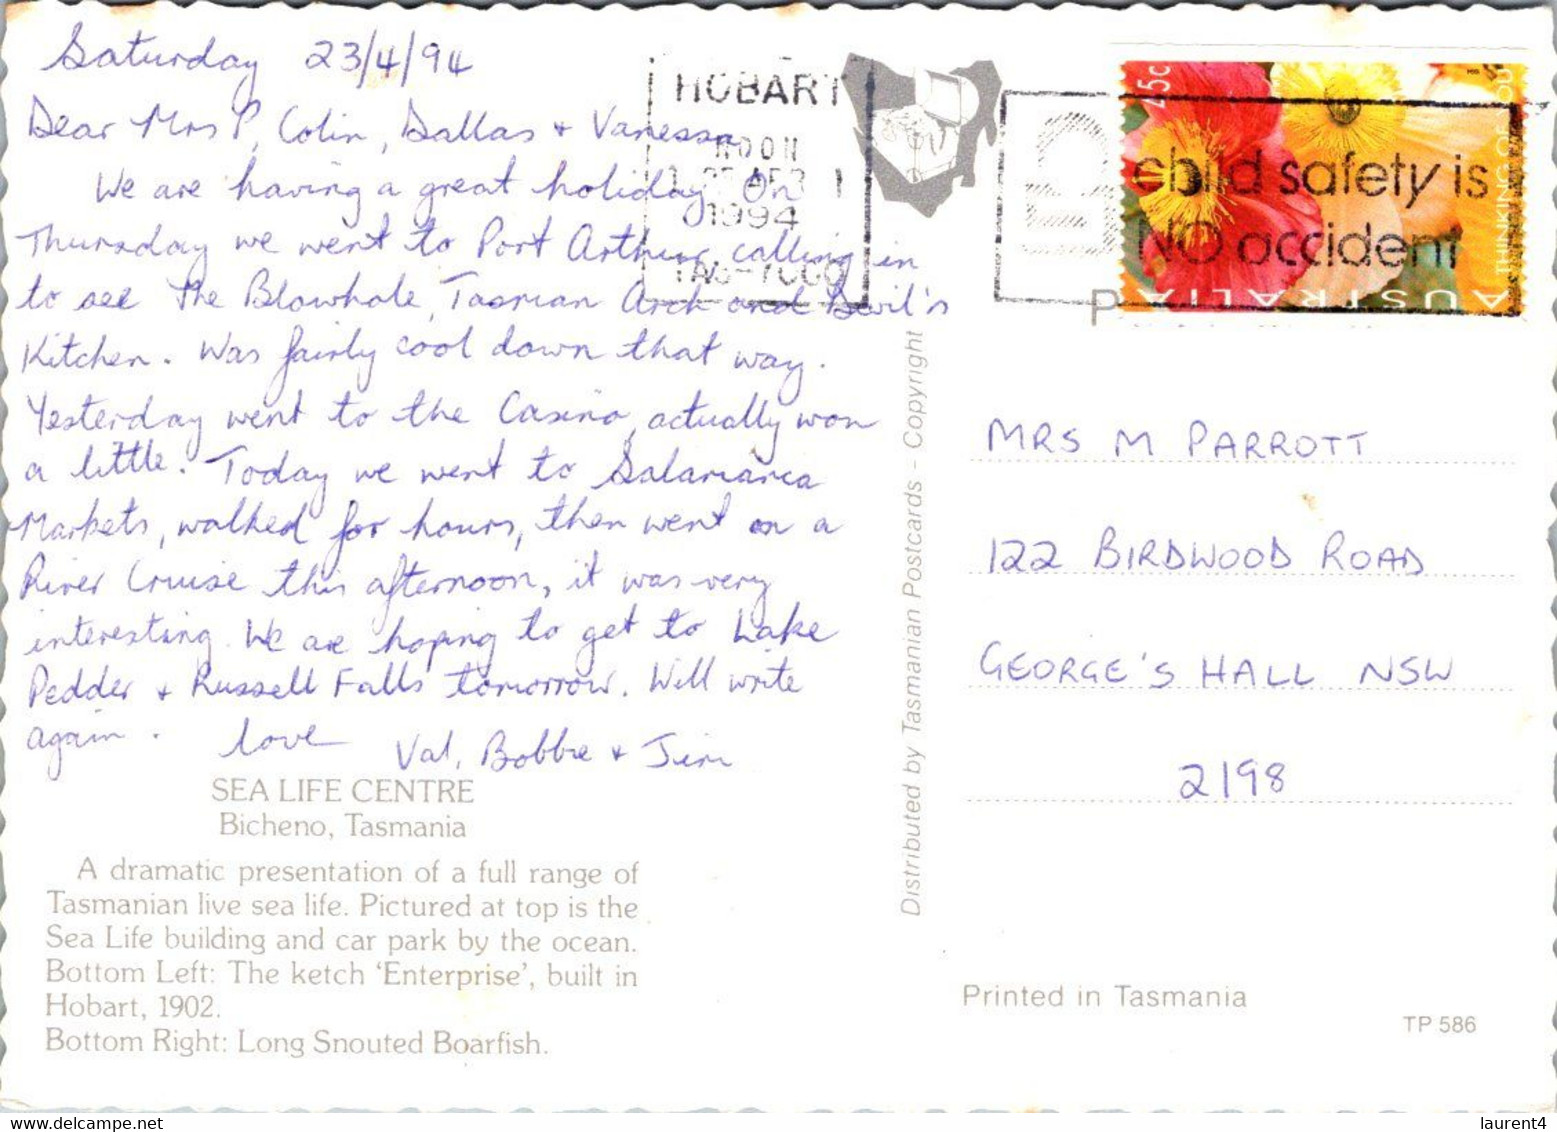 Saturday 23/4/94
Dear Mrs P, Colin, Dallas + Vanessa
We are having a great holiday. On
Thursday we went to Port Arthur calling in
to see the Blowhole, Tasman Arch and Devil's
Kitchen. Was fairly cool down that way.
Yesterday went to the Casino, actually won
a little. Today we went to Salamanca
Markets, walked for hours, then went on a
River Cruise this afternoon, it was very
interesting. We are hoping to get to Lake
Pedder + Russell Falls tomorrow. Will write
again.
love Val, Bobbie + Jim
SEA LIFE CENTRE
Bicheno, Tasmania
A dramatic presentation of a full range of
Tasmanian live sea life. Pictured at top is the
Sea Life building and car park by the ocean.
Bottom Left: The ketch ‘Enterprise’, built in
Hobart, 1902.
Bottom Right: Long Snouted Boarfish.
Distributed by Tasmanian Postcards - Copyright
HOBART
NOON
1994
TAS-7000
child safety is
NO accident
45c
THINKING OF YOU
AUSTRALIA
P
MRS M PARROTT
122 BIRDWOOD ROAD
GEORGE'S HALL NSW
2198
Printed in Tasmania
TP 586
delcampe.net
laurent4